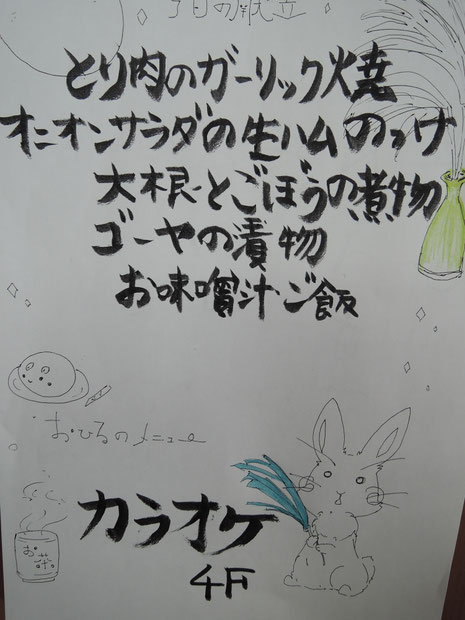 今日の献立
とり肉のガーリック焼
オニオンサラダの生ハムのっけ
大根とごぼうの煮物
ゴーヤの漬物
お味噌汁・ご飯
おひるのメニュー
お茶
カラオケ
4F